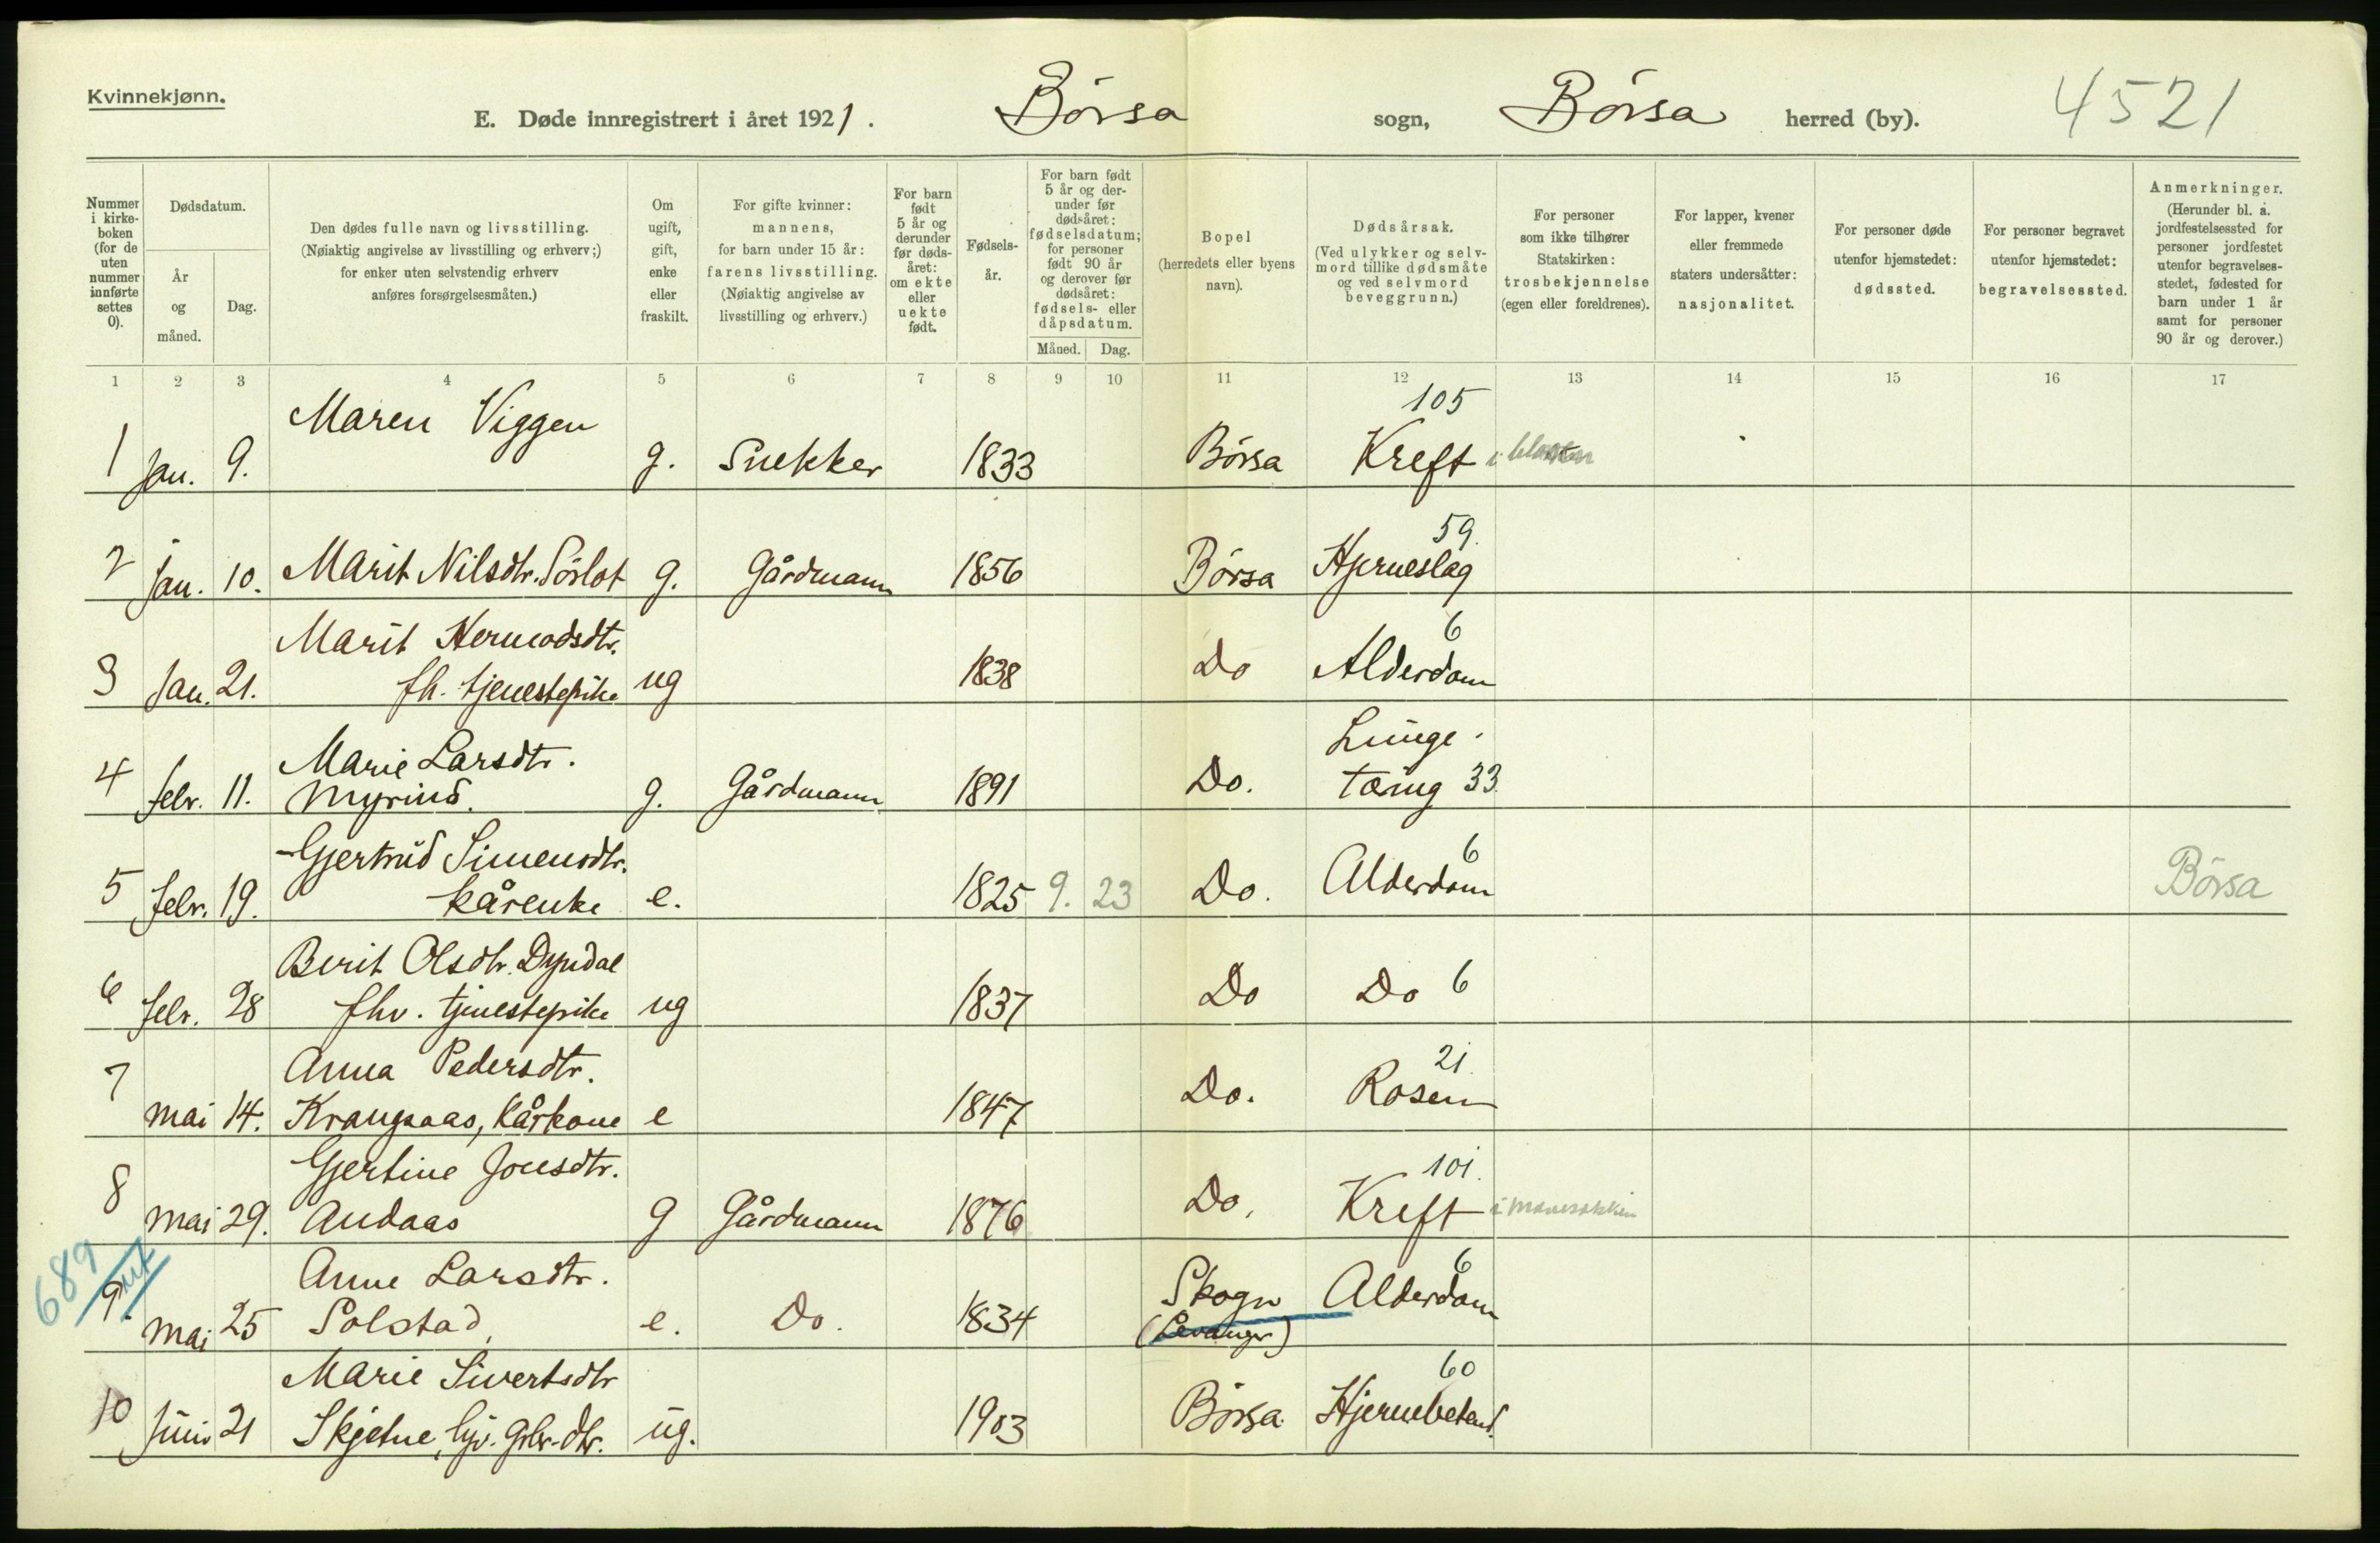 Kvinnekjønn.
E. Døde innregistrert i året 1921. Børsa sogn, Børsa herred (by). 4521
Nummer i kirke- boken (for de uten nummer innførte settes 0).
Dødsdatum.
År og måned.
Dag.
Den dødes fulle navn og livsstilling.
(Nøiaktig angivelse av livsstilling og erhverv;)
for enker uten selvstendig erhverv
anføres forsørgelsesmåten.)
Om ugift, gift, enke eller fraskilt.
For gifte kvinner:
mannens,
for barn under 15 år:
farens livsstilling.
(Nøiaktig angivelse av
livsstilling og erhverv.)
For barn født 5 år og derunder før døds- året: om ekte eller uekte født.
Fødsels- år.
For barn født 5 år og der- under før dødsåret: fødselsdatum; for personer født 90 år og derover før dødsåret: fødsels- eller dåpsdatum.
Måned. Dag.
Bopel
(herredets eller byens
navn).
Dødsårsak.
(Ved ulykker og selv-
mord tillike dødsmåte
og ved selvmord
beveggrunn.)
For personer
som ikke tilhører
Statskirken:
trosbekjennelse
(egen eller foreldrenes).
For lapper, kvener
eller fremmede
staters undersåtter:
nasjonalitet.
For personer døde
utenfor hjemstedet:
dødssted.
For personer begravet
utenfor hjemstedet:
begravelsessted.
Anmerkninger.
(Herunder bl. a.
jordfestelsessted for
personer jordfestet
utenfor begravelses-
stedet, fødested for
barn under 1 år
samt for personer
90 år og derover.)
1 2 3 4 5 6 7 8 9 10 11 12 13 14 15 16 17
Maren Viggen 105
1 Jan. 9. g. Snekker 1833 Børsa Kreft i
59.
2 Jan. 10. Marit Nilsdtr. Sørlot g. Gårdmann 1856 Børsa Hjerneslag
Marit Hermodsdtr. 6
3 Jan. 21. fh. tjenestepike ug 1838 Do Alderdom
Marie Larsdtr. Lunge-
4 febr. 11. Myrind. g. Gårdmann 1891 Do. tæring 33.
Gjertrud Simensdtr. 6
5 febr. 19. kårenke e. 1825 9. 23 Do. Alderdom Børsa
Berit Olsdtr. Dyrdal
6 febr. 28 fhv. tjenestepike ug 1837 Do Do 6
Anna Pedersdtr. 21
7 mai 14. Krangsaas, kårkone e 1847 Do. Rosen
Gjertine Jonsdtr. 101.
8 mai 29. Andaas g Gårdmann 1876 Do. Kreft i
689
Anne Larsdtr. Skogn 6
9 mai 25 Solstad, e. Do. 1834 (Levanger) Alderdom
Marie Sivertsdtr 60
10 Juni 21 Skjetne, hjv. grbr. dtr. ug. 1903 Børsa Hjernebetend.